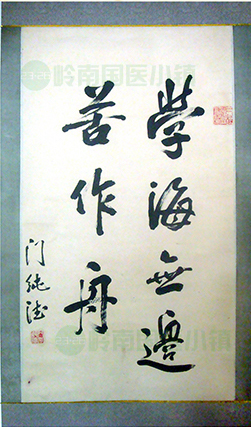 岭南国医小镇
學海無邊
苦作舟
门纯德
岭南国医小镇